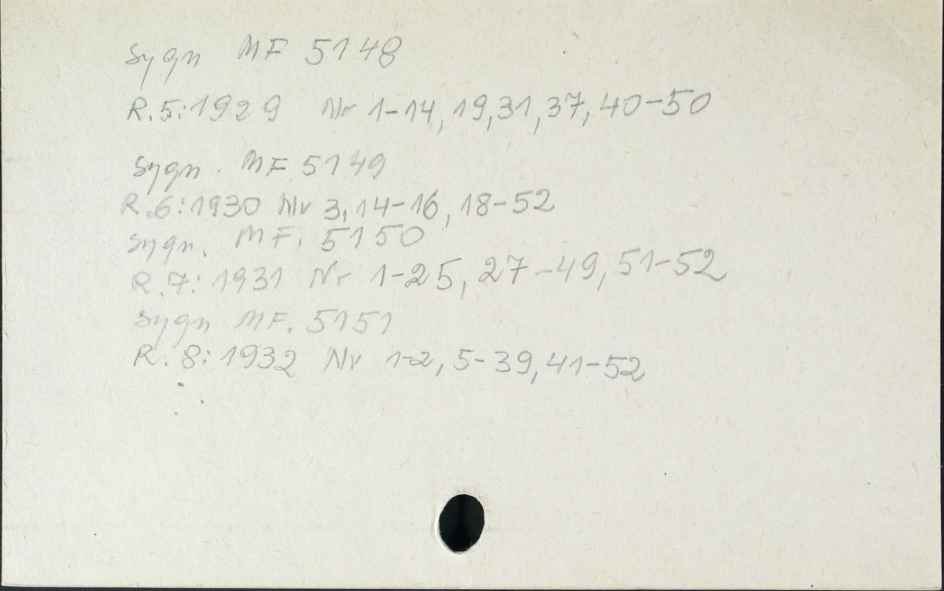 Sygn MF 5148
R.5:1929 Nr 1-14,19,31,37,40-50
Sygn. MF 5149
R.6:1930 Nr 3,14-16,18-52
Sygn. MF. 5150
R.7:1931 Nr 1-25,27-49,51-52
Sygn MF. 5151
R.8:1932 Nr 1-2,5-39,41-52